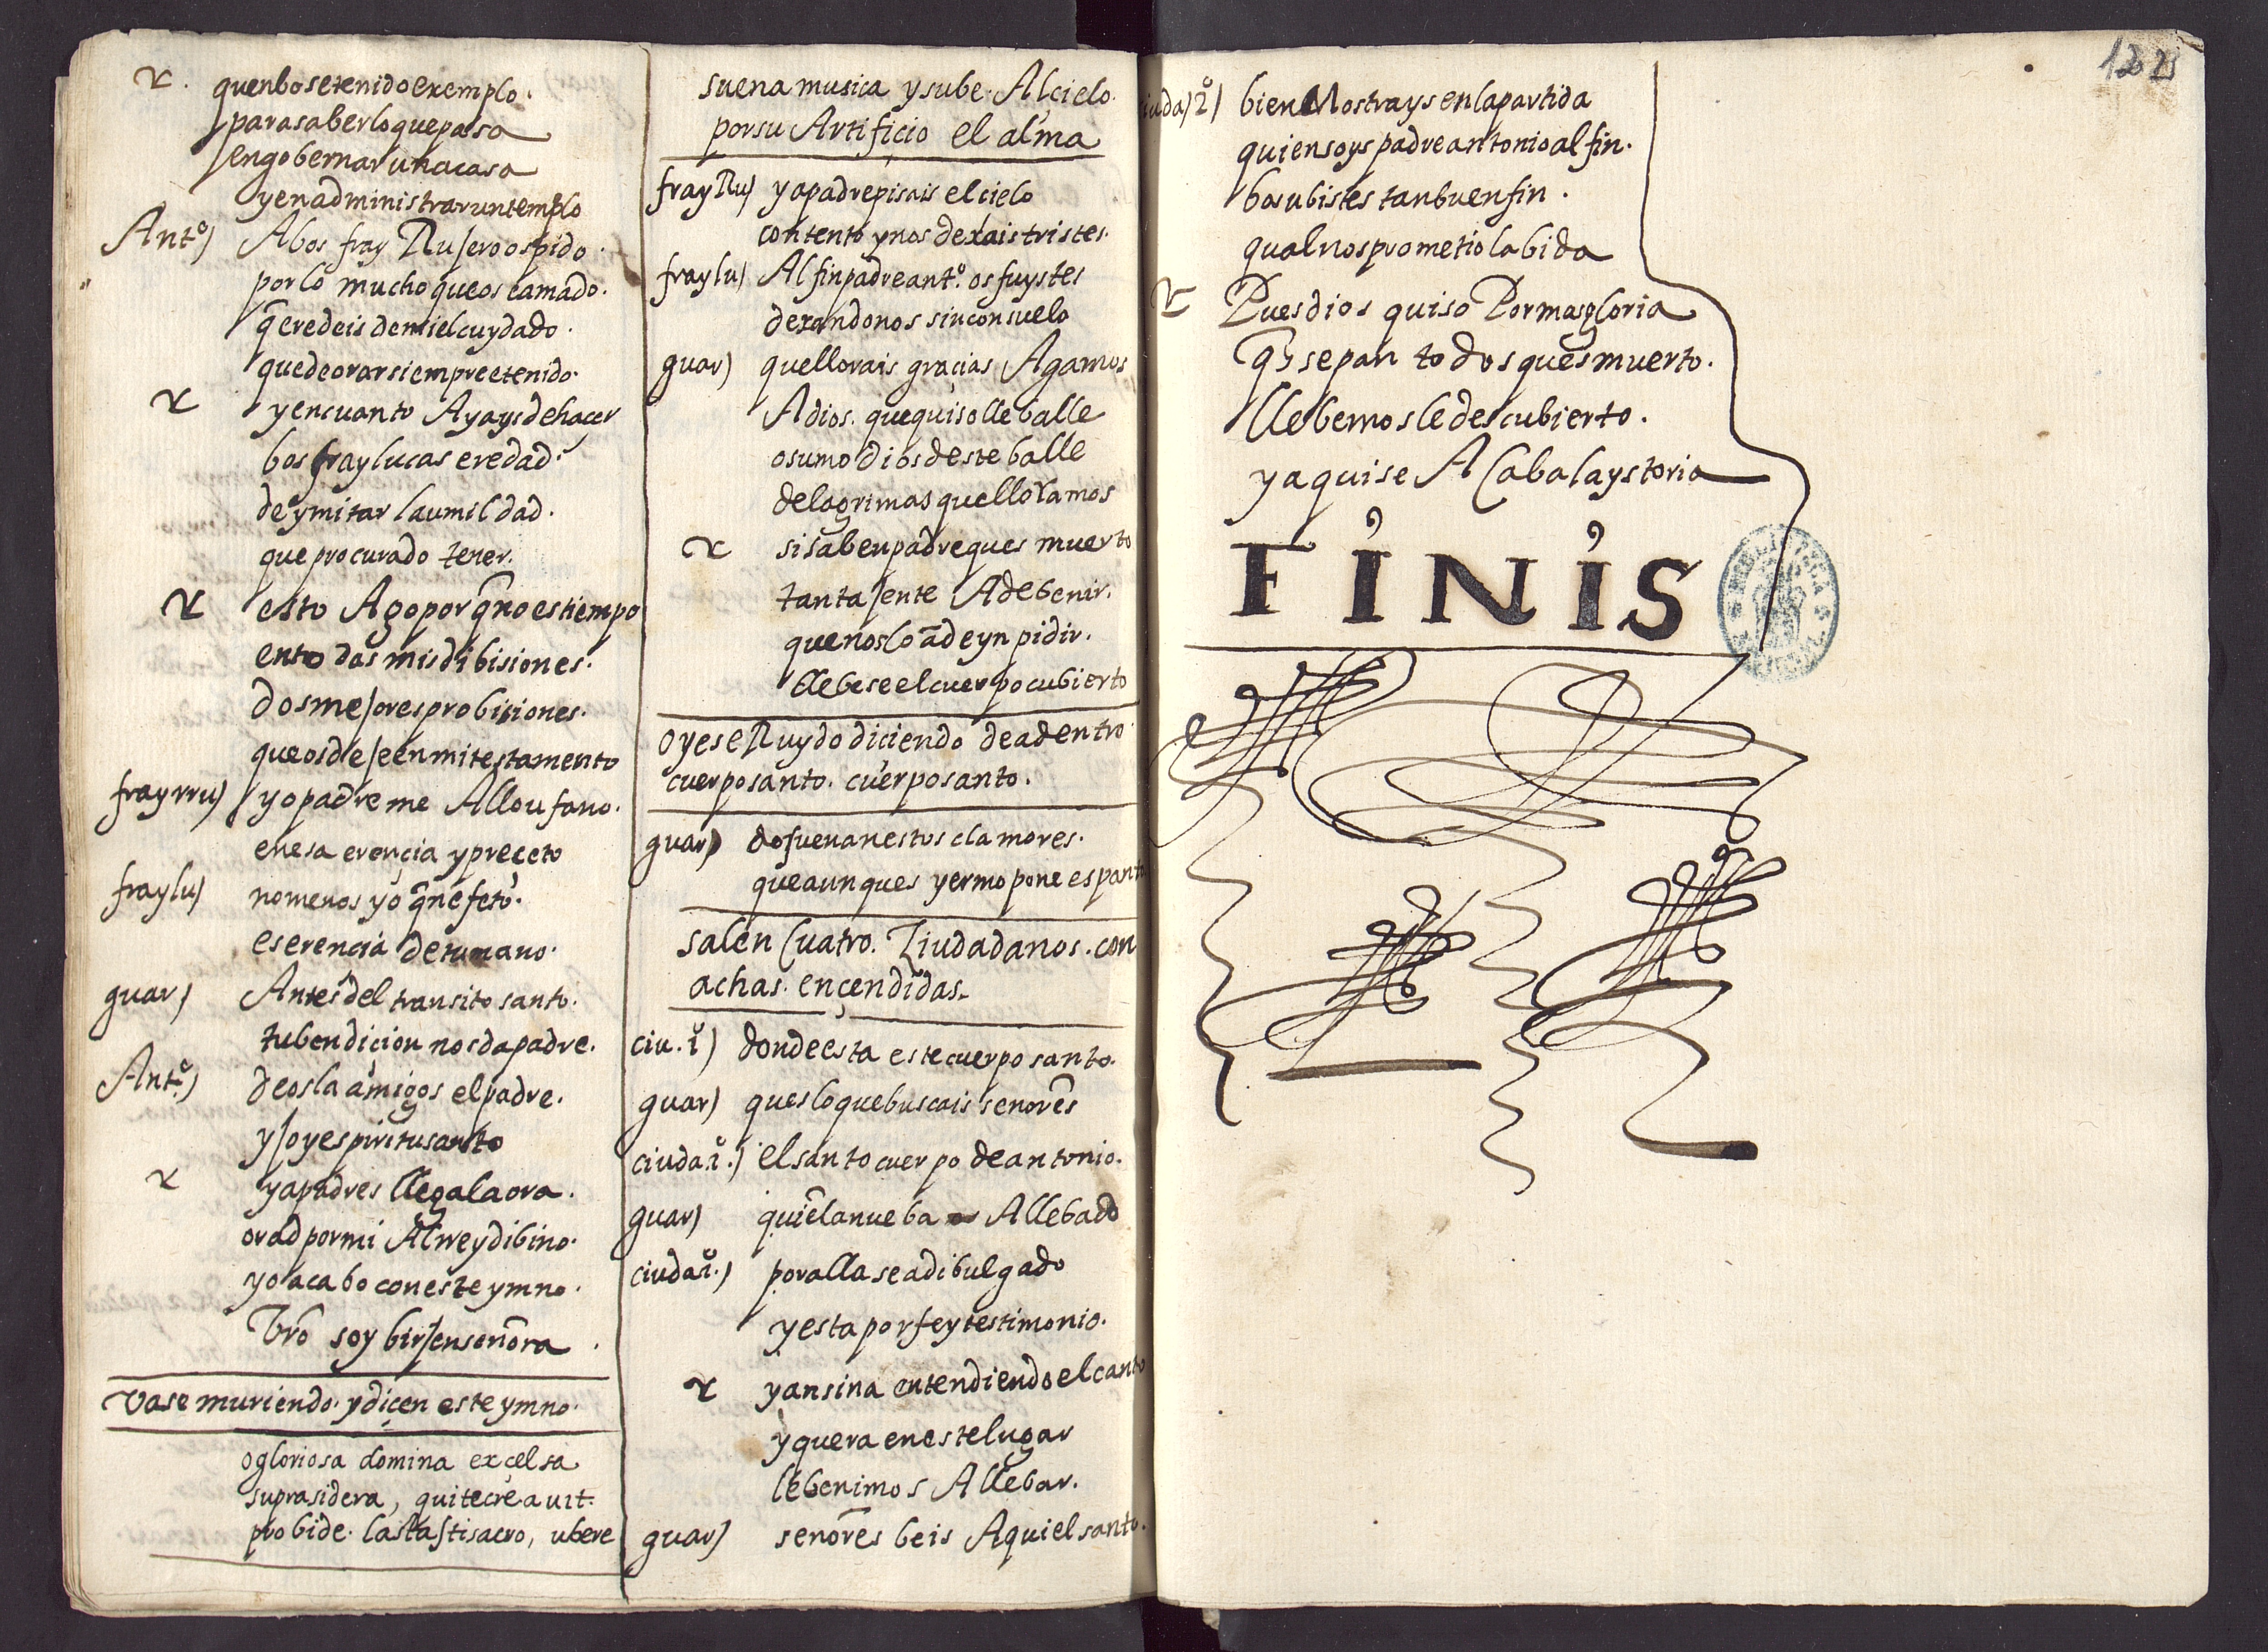 r. quenbosetenidoexemplo.
parasaberloquepasa
engobernarunacasa
yenadministraruntemplo
Antº) Abos fray Rujeroospido.
porlo mucho queos eamado.
q̃eredeis demielcuydado.
quedeorarsiempreetenido.
r yencuanto Ayaysdehacer
bos fraylucas eredad.
deymitar laumildad.
que procurado tener.
r esto Agoporq̃noestiempo
ento das misdibisiones.
dosmejoresprobisiones.
queosdejeenmitestamento
frayrru) yopadreme Alloufano.
enesa erençia ypreçeto
fraylu) nomenos yo q̃nefeto.
eserencia detumano.
guar) Antesdel transito santo.
tubendicion nosdapadre.
Antº) deosla amigos elpadre.
yjoyespiritusanto
r yapadres llegalaora.
oradpormi Alrreydibino.
yoacabo coneste ymno.
Vr̃o soy birjensenõra.
vase muriendo. ydiçen este ymno.
ogloriosa domina exçelsa
suprasidera, quitecreauit.
probide. lastastisacro, ubere
suena musica ysube. Alcielo.
porsu Artifiçio el alma
frayRu) yapadrepisais elcielo
contento ynos dexaistristes.
fraylu) Alfinpadreantº. osfuystes
dexandonos sinconsuelo
guar) quellorais graçias Agamos
Adios. quequisolleballe
osumo diosdesteballe
delagrimas quelloramos
r sisabenpadreques muerto
tantajente Adebenir.
quenosloãdeynpidir.
llebeseelcuerpocubierto
oyeseRuydo diciendo deadentro.
cuerposanto. cuerposanto.
guar) dosuenanestos clamores.
queaunques yermopone espanto
salen Cuatro. Ziudadanos. con
achas. ençendidas.
ciu. 1º) dondeesta estecuerposanto.
guar) quesloquebuscais senorẽs
ciuda.1º.) elsantocuerpo deantonio.
guar) quiẽlanueba Allebado
ciuda2º.) poralla seadibulgado
yestaporfeytestimonio.
r yansina entendiendoelcanto
yquera enestelugar
lebenimos Allebar.
guar) senorẽs beis Aquielsanto.
12 23
iuda)2º) bienMostraysenlapartida
quiensoys padreantonioalfin.
bosubistes tanbuenfin.
qualnosprometiolabida
r Puesdios quiso Pormasgloria
q̃ sepan todosquesmuerto.
llebemosledescubierto.
yaquise Acabalaystoria
FINIS